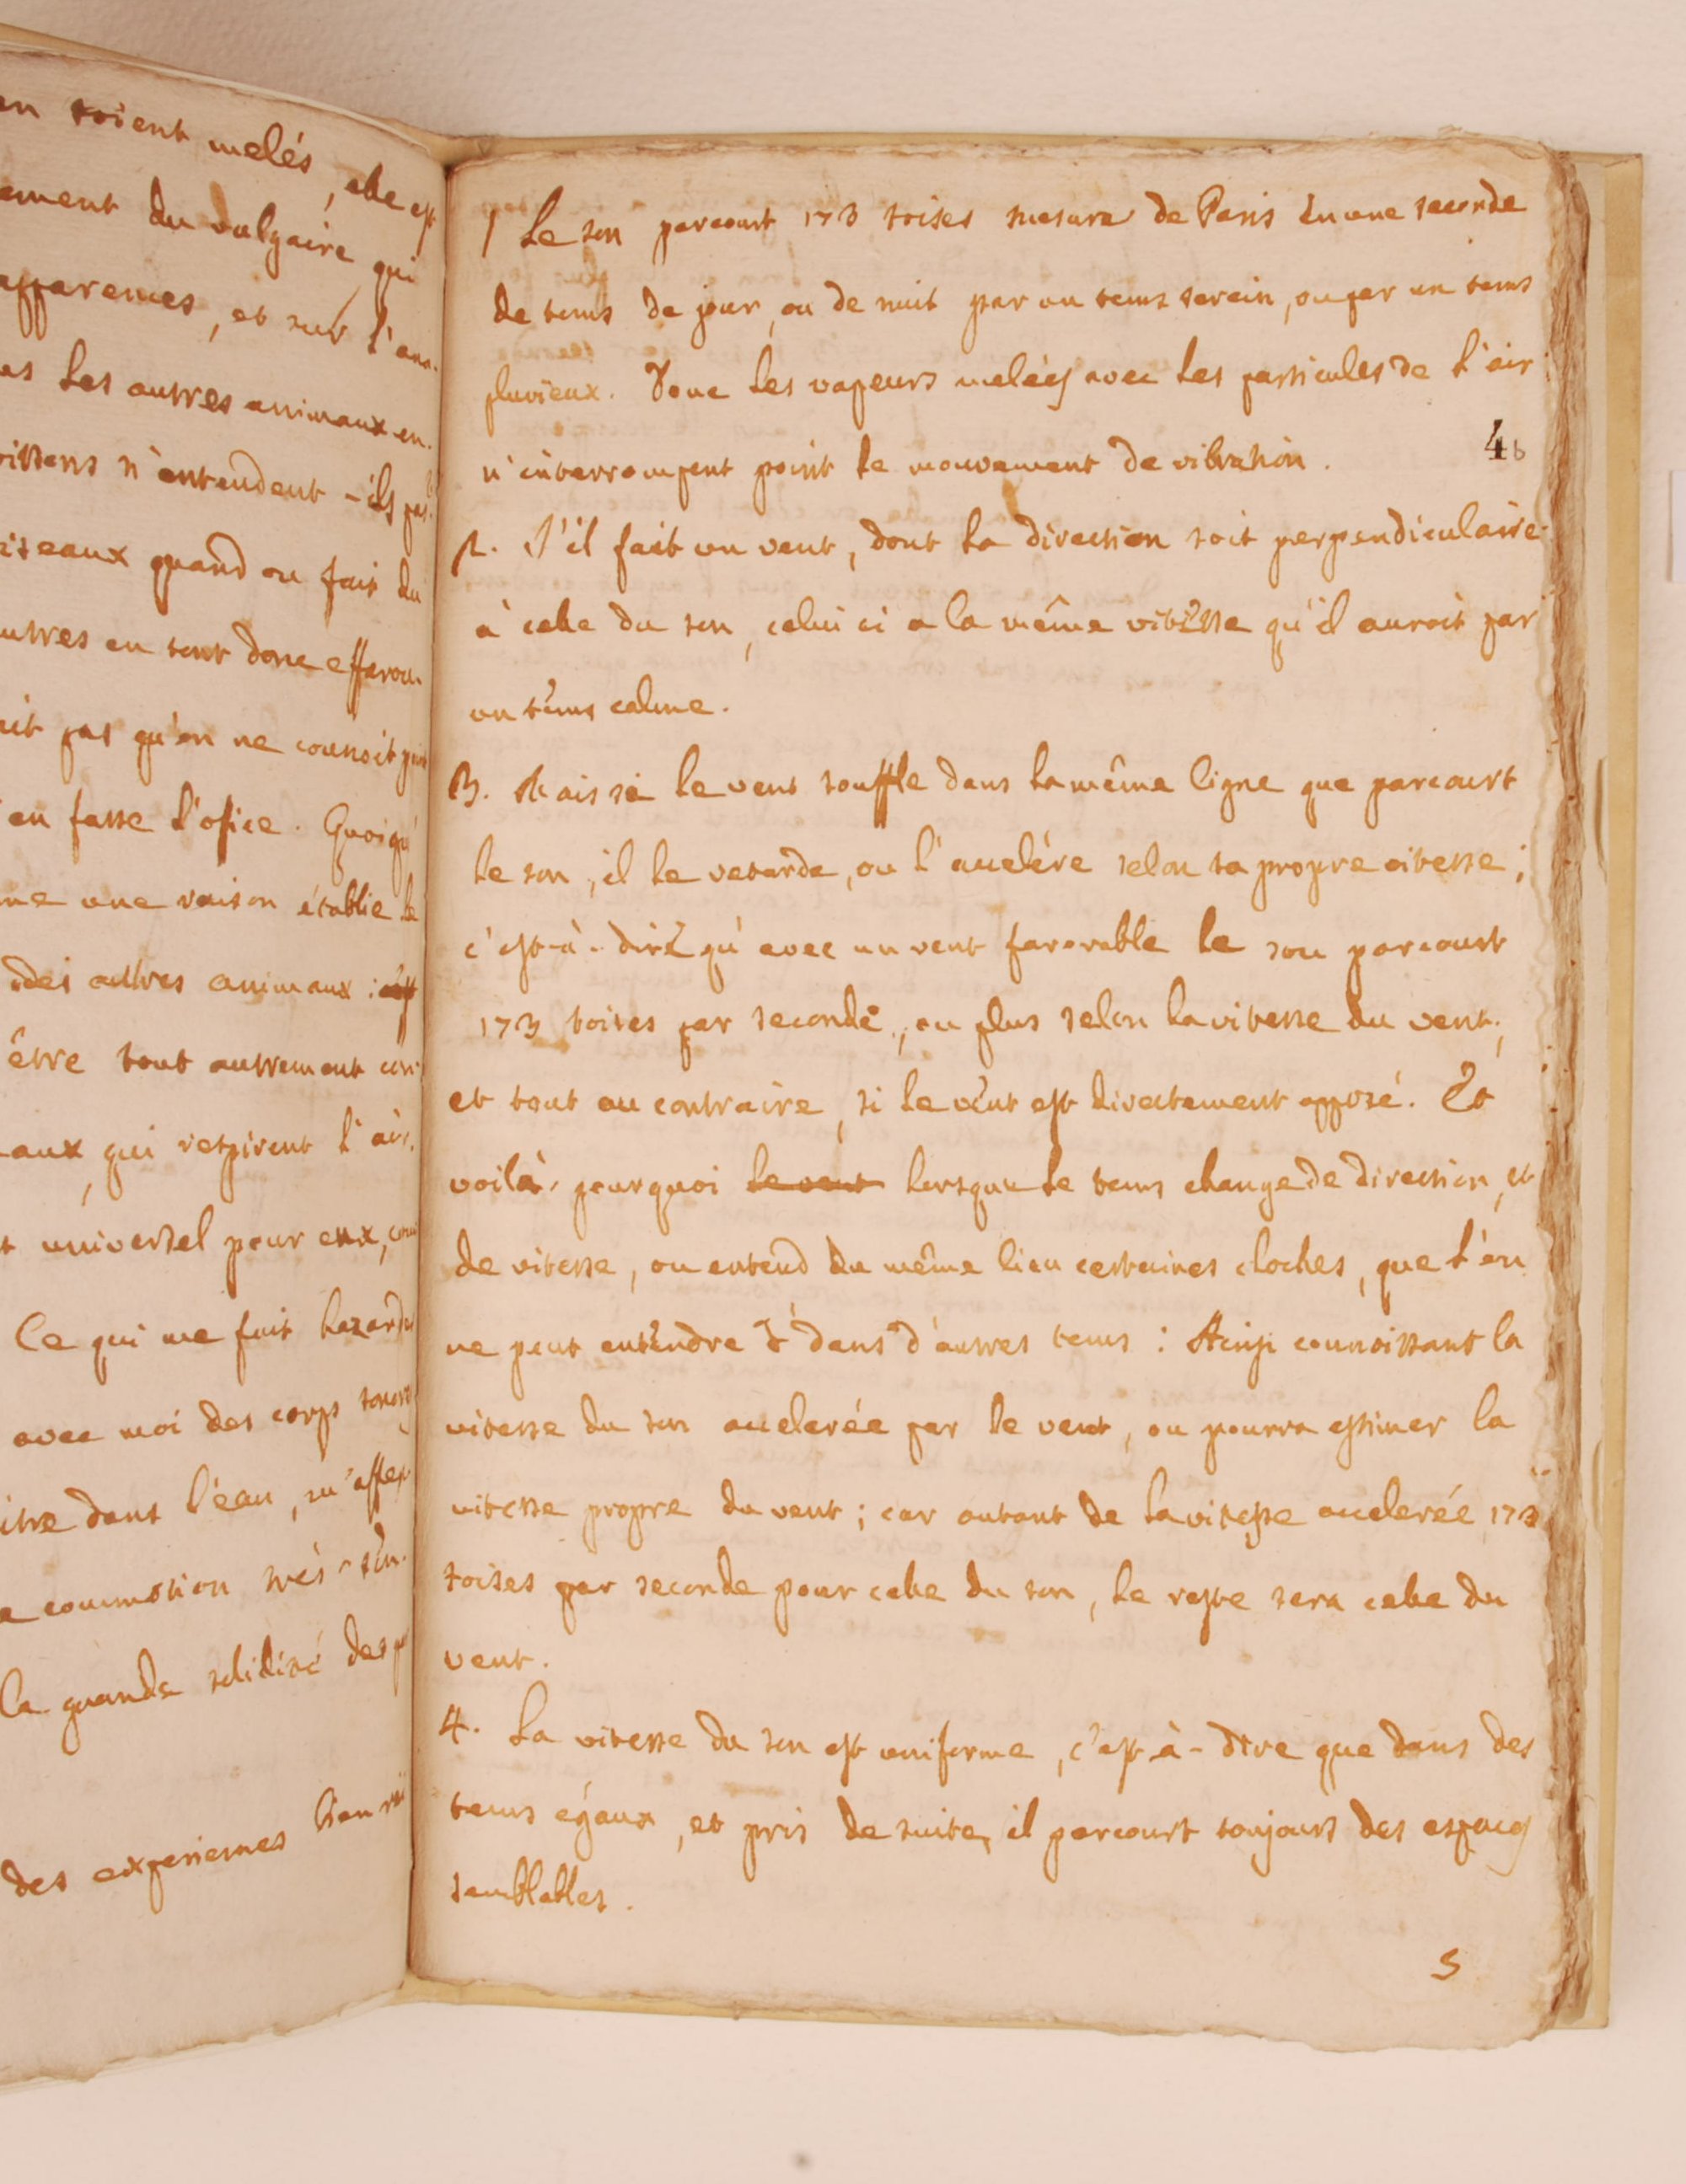 en soient melés, elle est
ement du vulgaire qui
apparences, et sur l'ana-
as les autres animaux en-
oissons n'entendent-ils pas
iseaux quand on fait du
autres en sont donc effarou-
uit pas qu'on ne connoit point
'en fasse l'ofice. Quoiqu'
ne une raison établie
des autres animaux :
être tout autrement
aux, qui respirent l'air,
t universel pour eux,
Ce qui me fait hazarder
avec moi des corps sonores
itre dans l'eau,
e commotion très-sen-
la grande solidité des
des experiences bien
1 Le son parcourt 173 toises mesure de Paris en une seconde
de tems de jour, ou de nuit par un tems serein, ou par un tems
pluvieux. Donc les vapeurs melées avec les particules de l'air
n'interrompent point le mouvement de vibration.
46
2. S'il fait un vent, dont la direction soit perpendiculaire
à celle du son, celui ci a la même vitesse qu'il auroit par
un tems calme.
3. Mais si le vent souffle dans la même ligne que parcourt
le son, il le retarde, ou l'accelére selon sa propre vitesse ;
c'est-à-dire qu'avec un vent favorable le son parcourt
173 toises par seconde, ou plus selon la vitesse du vent,
et tout au contraire, si le vent est directement opposé. Et
voilà pourquoi le vent lorsque le tems change de direction, et
de vitesse, on entend du même lieu certaines cloches, que l'on
ne peut entendre dans d'autres tems : Ainsi connoissant la
vitesse du son accelerée par le vent, on pourra estimer la
vitesse propre du vent ; car outant de la vitesse accelerée 173
toises par seconde pour celle du son, le reste sera celle du
vent.
4. La vitesse du son est uniforme, c'est-à-dire que dans des
tems égaux, et pris de suite, il parcourt toujours des espaces
semblables.
5